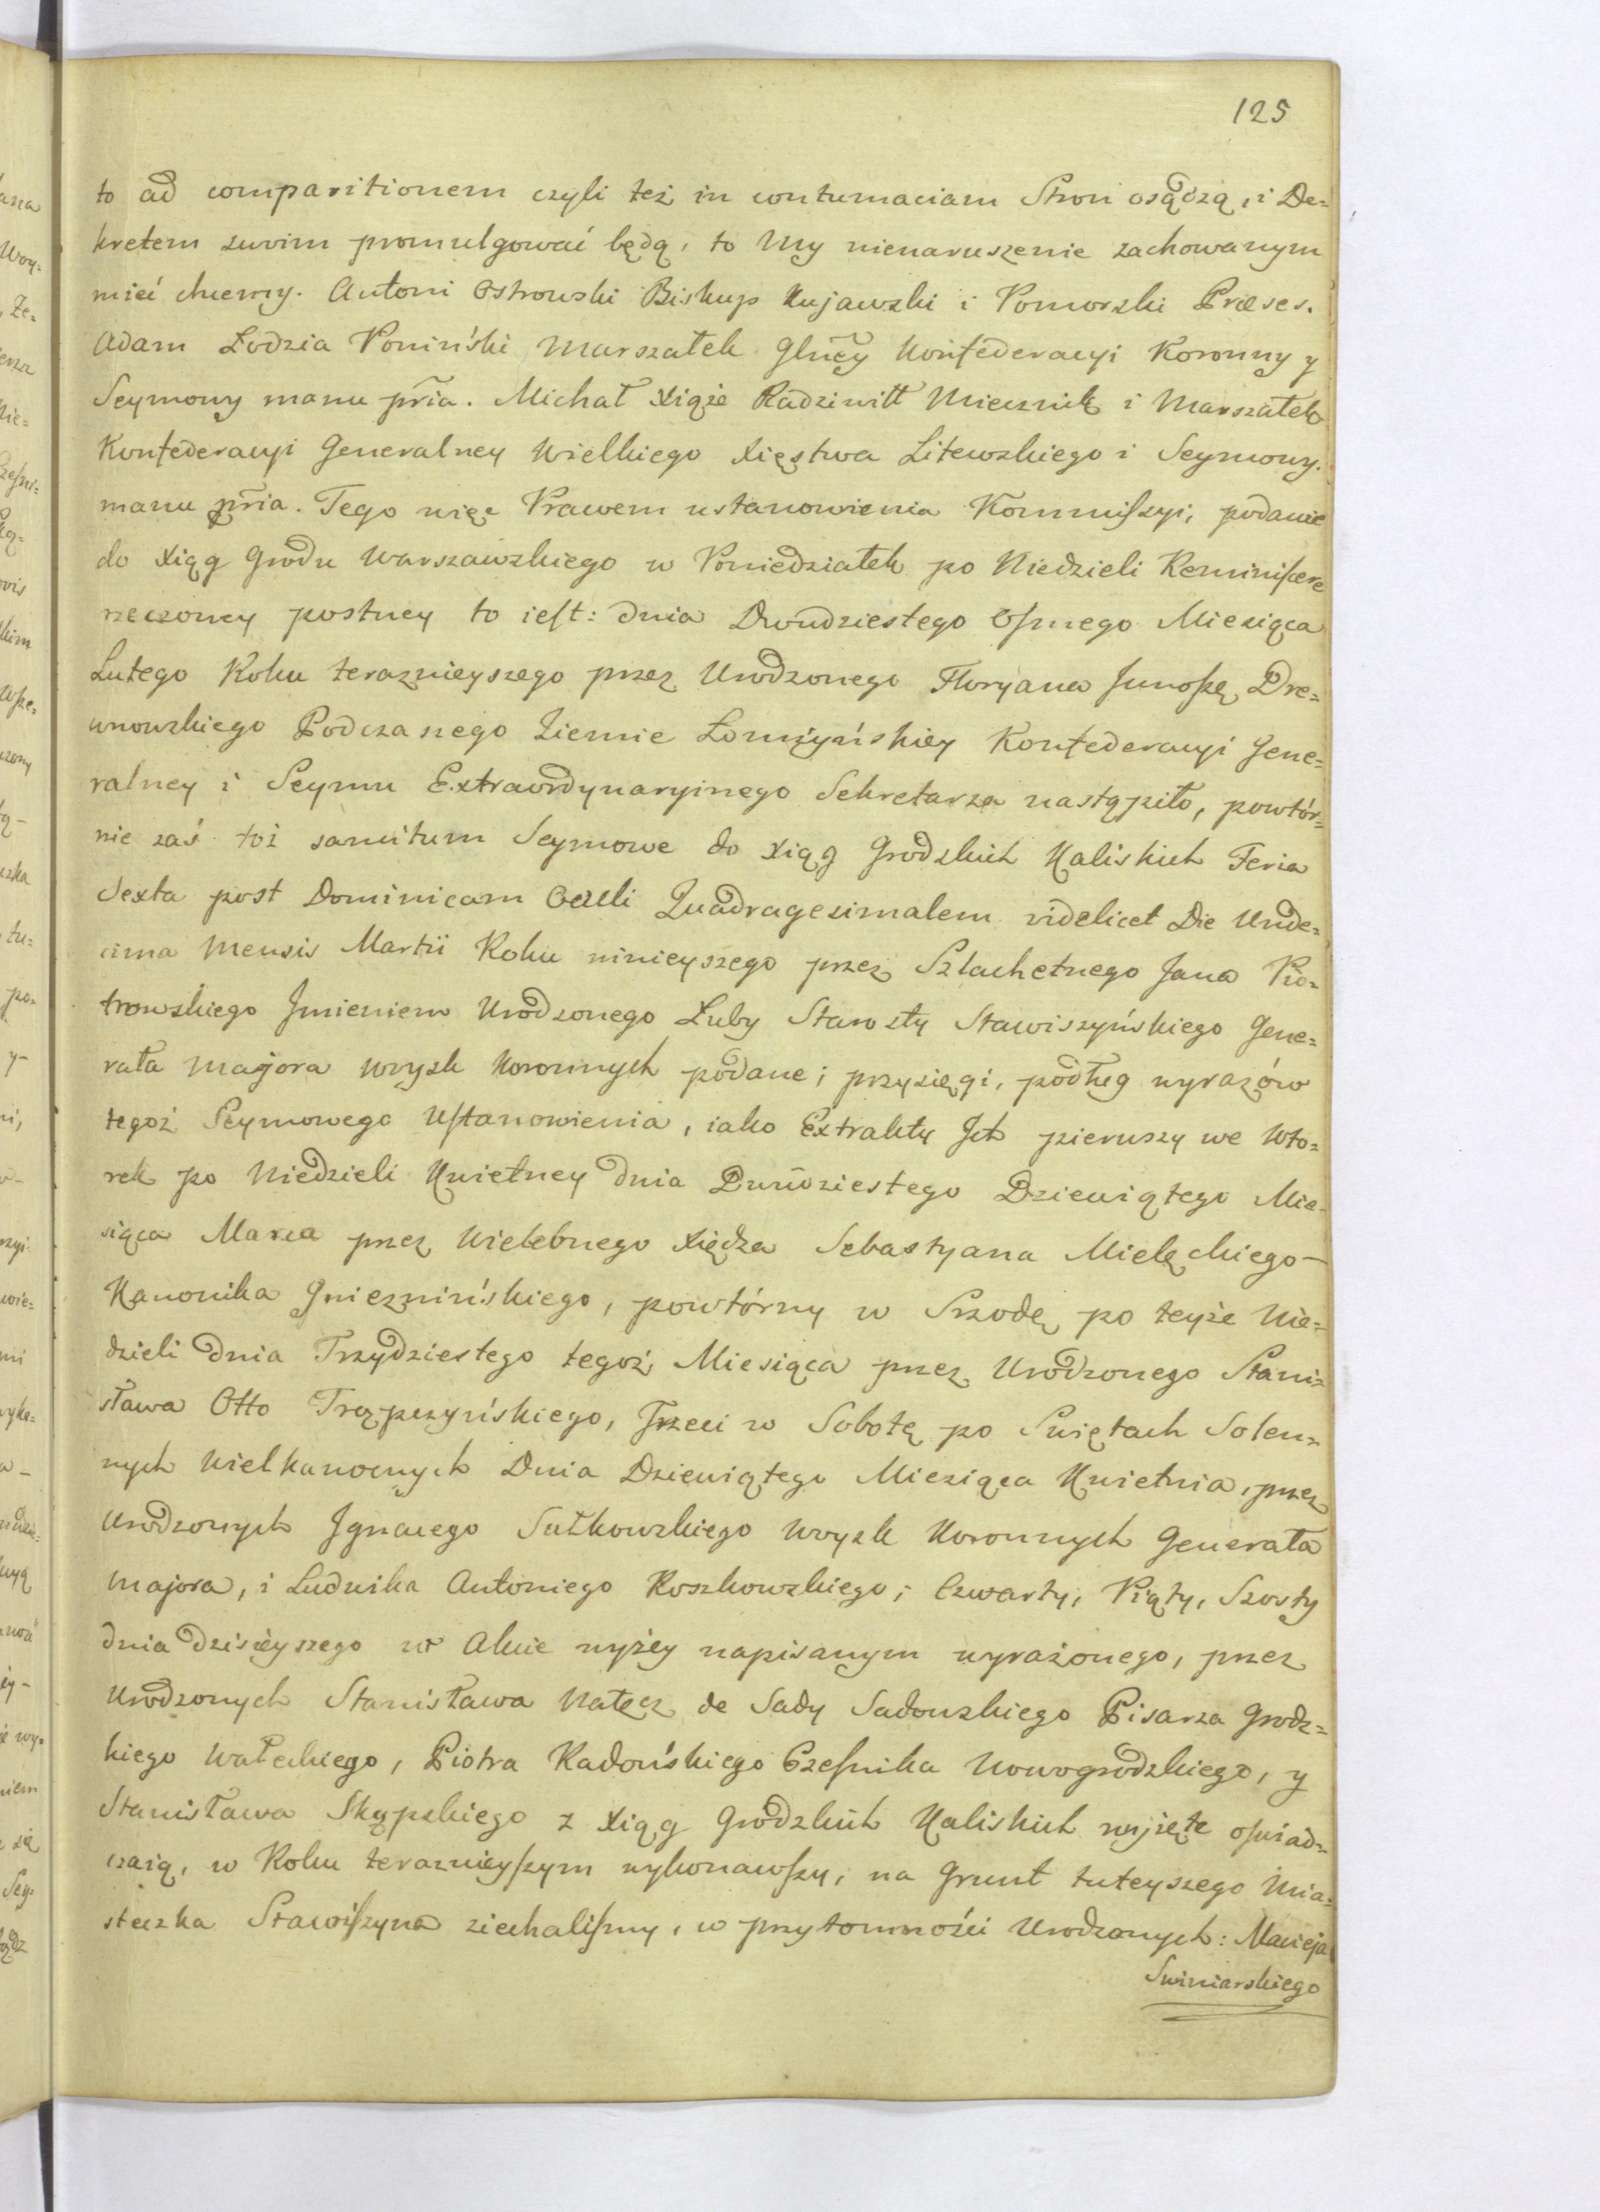 125
to ad comparitionem czyli też in contumaciam Stron osądzą, i De=
kretem swoim promulgować będą, to My nienaruszenie zachowanym
mieć chcemy. Antoni Ostrowski Biskup Kujawski i Pomorski Præses.
Adam Łodzia Poniński Marszałek Glñcy Konfederacyi Koronny y
Seymowy manu pr̃ia. Michał Xiąże Radziwiłł Miecznik i Marszałek
Konfederacyi Generalney Wielkiego Xięstwa Litewskiego i Seymowy.
manu pr̃ia. Tego więc Prawem ustanowienia Kommiſzyi, podanie
do Xiąg Grodu Warszawskiego w Poniedziałek po Niedzieli Reminiſcere
rzeczoney postney to ieſt: dnia Dwudziestego Oſmego Miesiąca
Lutego Roku teraznieyszego przez Urodzonego Floryana Junoſzę Dre=
wnowskiego Podczaszego Ziemie Łomżyńskiey Konfederacyi Gene=
ralney i Seymu Extraordynaryinego Sekretarza nastąpiło, powtór=
nie zaś toż sancitum Seymowe do Xiąg Grodzkich Kaliskich Feria
Sexta post Dominicam Oculi Quadragesimalem videlicet Die Unde=
cima Mensis Martii Roku ninieyszego przez Szlachetnego Jana Pio=
trowskiego Jmieniem Urodzonego Łuby Starosty Stawiszyńskiego Gene=
rała Majora Woysk Koronnych podane; przysięgi, podług wyrazów
tegoż Seymowego Uſtanowienia, iako Extrakty Jch pierwszy we Wto=
rek po Niedzieli Kwietney dnia Dwudziestego Dziewiątego Mie=
siąca Marca przez Wielebnego Xiędza Sebastyana Mielęckiego—
Kanonika Gniezninśkiego, powtórny w Srzodę po teyże Nie=
dzieli dnia Trzydziestego tegoż Miesiąca przez Urodzonego Stani=
sława Otto Trąpczyńskiego, Trzeci w Sobotę po Swiętach Solen=
nych Wielkanocnych Dnia Dziewiątego Miesiąca Kwietnia, przez
Urodzonych Jgnacego Sułkowskiego Woysk Koronnych Generała
Majora, i Ludwika Antoniego Koszkowskiego; Czwarty, Piąty, Szosty
dnia dzisieyszego w Akcie wyżey napisanym wyrażonego, przez
Urodzonych Stanisława Nałęcz de Sady Sadowskiego Pisarza Grodz=
kiego Wałeckiego, Piotra Radońskiego Czeſnika Nowogrodzkiego, y
Stanisława Skąpskiego z Xiąg Grodzkich Kaliskich wyjęte oſwiad=
czaią, w Roku teraznieyſzym wykonawſzy, na Grunt tuteyszego Mia=
steczka Stawiſzyna ziechaliſmy, w przytomności Urodzonych: Macieja
Swiniarskiego